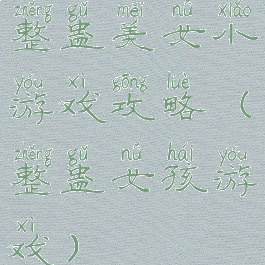 zhěng gǔ měi nǚ xiǎo
整蛊美女小
yóu xì gōng lüè
游戏攻略（
zhěng gǔ nǚ hái yóu
整蛊女孩游
xì
戏）